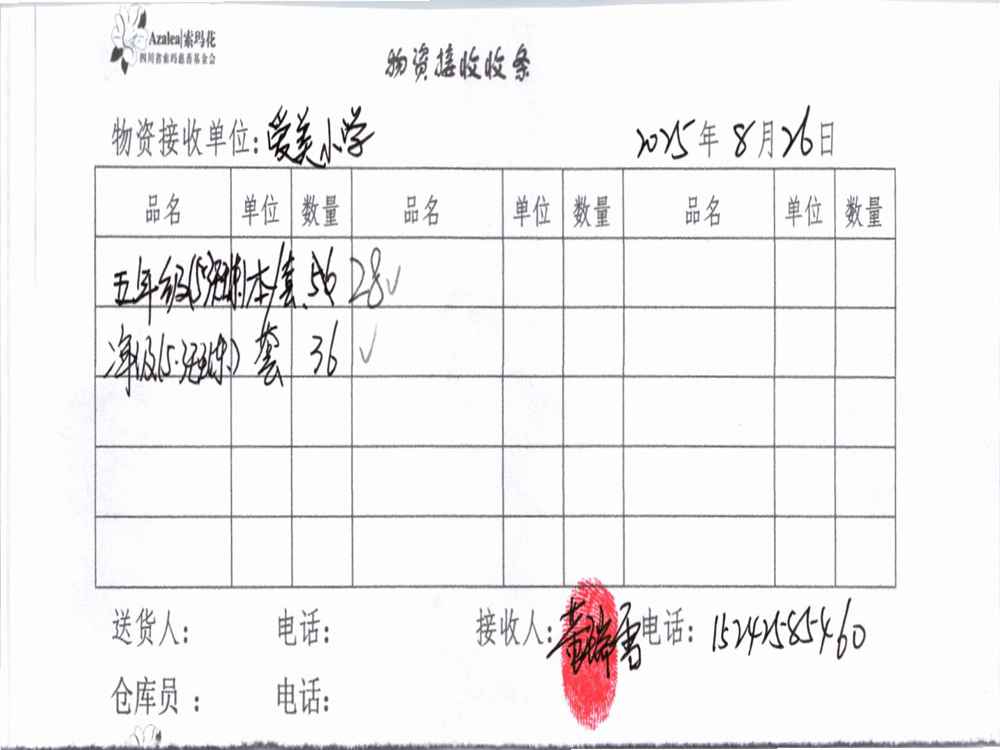 Azalea|索玛花
四川省索玛慈善基金会
物资接收收条
物资接收单位:爱美小学 2025年8月26日
品名 单位 数量 品名 单位 数量 品名 单位 数量
五年级(5 本/套 56 28✓
级(5 套 36 ✓
送货人: 电话: 接收人:黄瑞雪 电话:15242585460
仓库员: 电话: